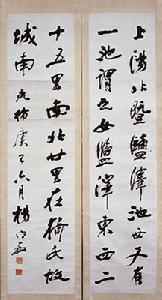 北暨鹽澤池西又有
一池謂之女鹽澤東西二
十五里南北廿里在猗氏故
城南 庚子六月 楊守敬